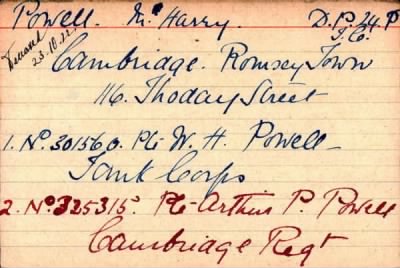 Powell. Mr Harry. D.P. 24. P
I.C.
Deceased
23.10.22
Cambridge. Romsey Town
116. Thoday Street
1. No. 301560. Pte W. H. Powell
Tank Corps
2. No. 325315. Pte Arthur P. Powell
Cambridge Regt